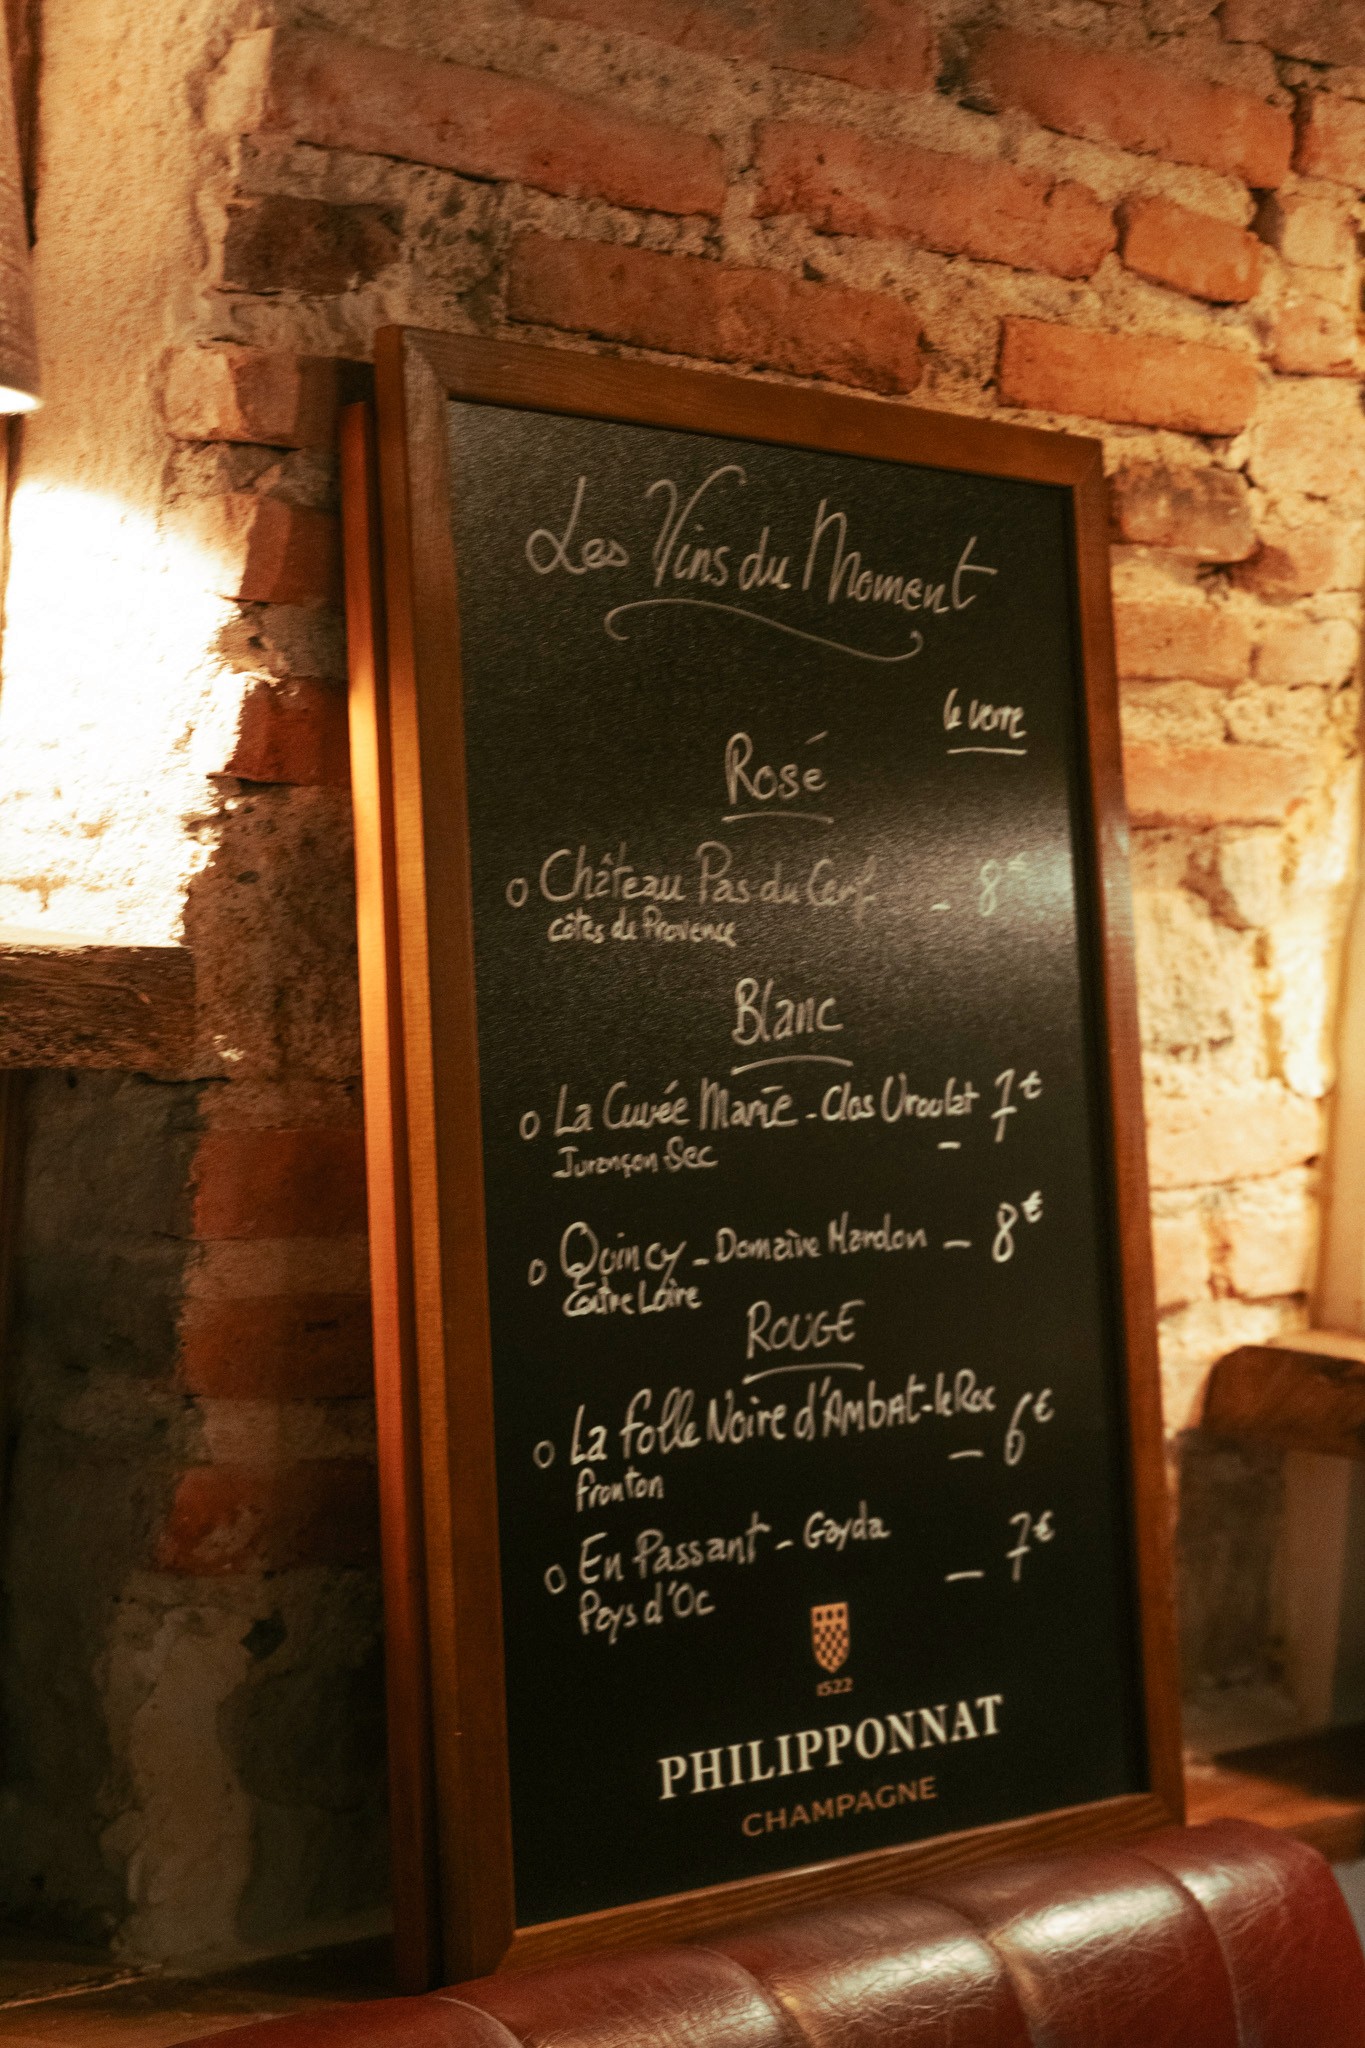 Les Vins du Moment
le verre
Rosé
o Château Pas du Cerf - 8€
côtes de Provence
Blanc
o La Cuvée Marie - Clos Uroulat - 7€
Jurançon Sec
o Quincy - Domaine Mardon - 8€
Centre Loire
ROUGE
o La folle Noire d'AMBAT-le Roc - 6€
fronton
o En Passant - Gayda - 7€
Pays d'Oc
1522
PHILIPPONNAT
CHAMPAGNE